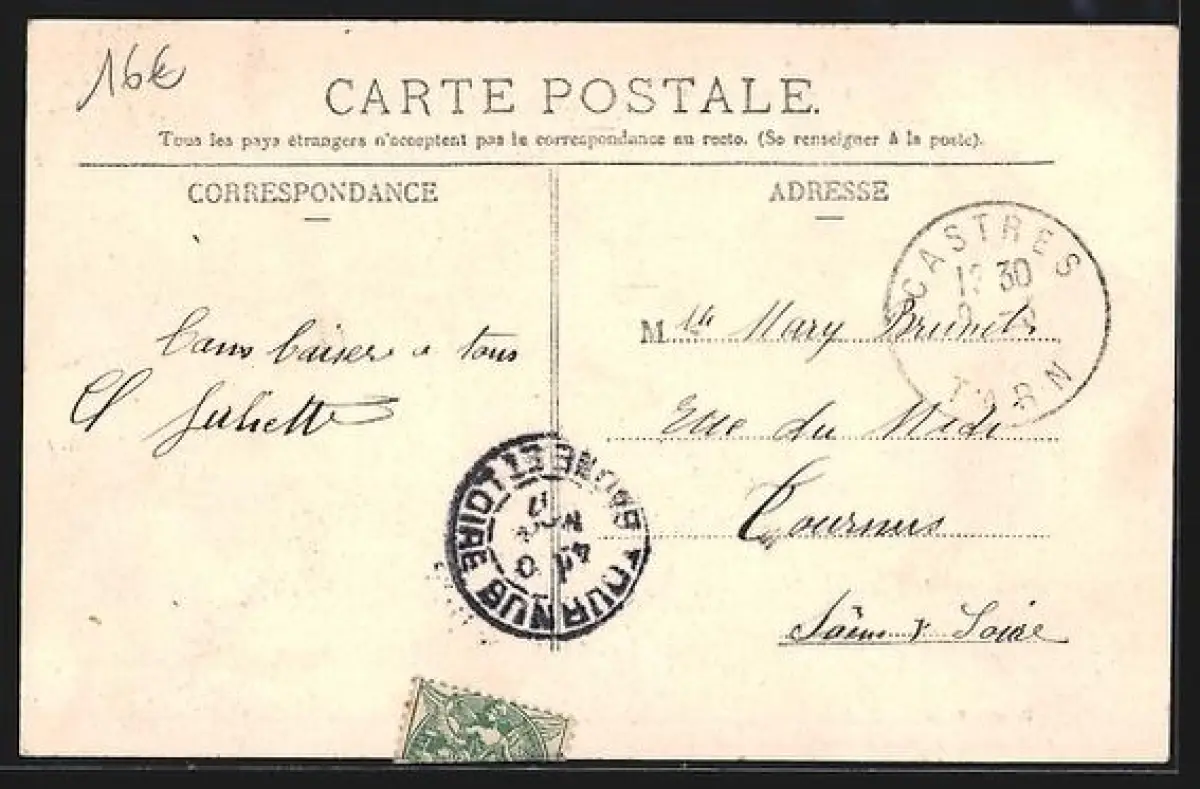 16€
CARTE POSTALE.
Tous les pays étrangers n'acceptent pas la correspondance au recto. (Se renseigner à la poste).
CORRESPONDANCE
ADRESSE
CASTRES
30
TARN
baiser a tous
Juliette
Mlle Mary Brunet
Rue du Midi
Tournus
Saône & Loire
TOURNUS
SAONE ET LOIRE